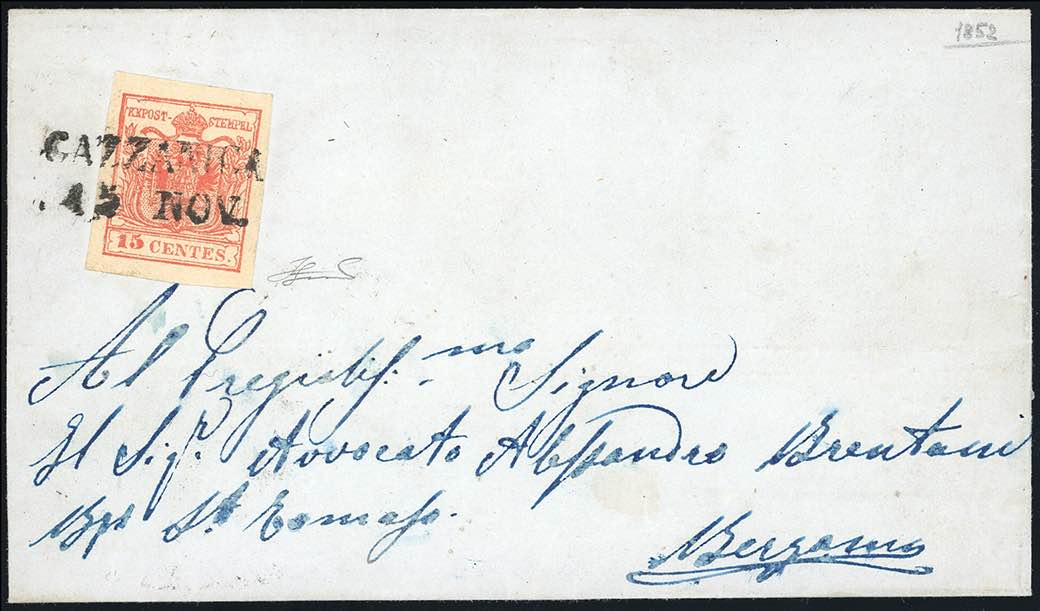 1852
KKPOST-STEMPEL
GAZZANIGA
15 NOV.
15 CENTES.
Al Pregiatis.mo Signore
Il Sig.r Avvocato Alessandro Brentani
St. Tomaso.
Bergamo